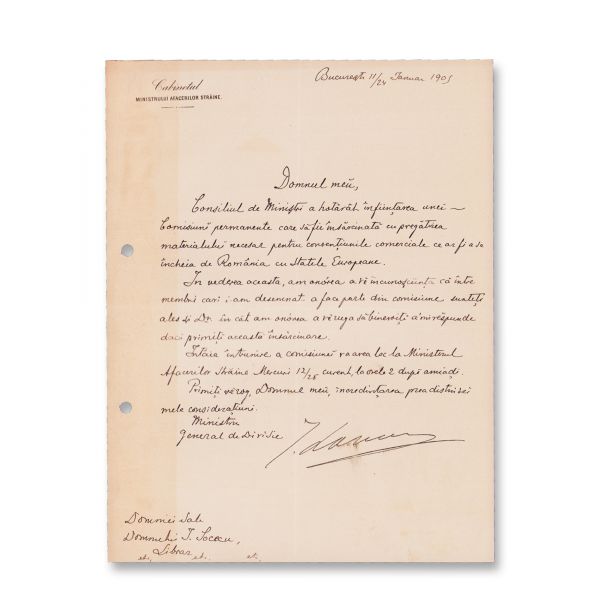 București 11/24 Ianuar 1905
Cabinetul
MINISTRULUI AFACERILOR STRĂINE.
Domnul meŭ,
Consiliul de Miniștri a hotărât înființarea unei
Comisiuni permanente care să fii însărcinată cu pregătirea
materialului necesar pentru convențiunile comerciale ce ar fi a se
încheia de România cu Statele Europeane.
In vederea aceasta, am onórea a vĕ incunosciința că între
membri cari i am desemnat a face parte din comisiune sunteți
ales și Dv. în cât am onórea a vĕ ruga să binevoiți a'mi respunde
dacă primiți această însărcinare.
Intâia întrunire a comisiunei va avea loc la Ministerul
Afacerilor Străine Mercuri 12/25 curent, la orele 2 după amiadi.
Primiți vĕ rog, Domnul meŭ, incredințarea prea distinsei
mele considerațiuni.
Ministru
General de Divisie
Domniei Sale
Domnului I. Socecu,
Librar
etc. etc. etc.